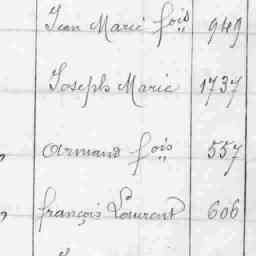 Jean Marie fois 949
Joseph Marie 1737
Armand fois 557
françois Laurent 606